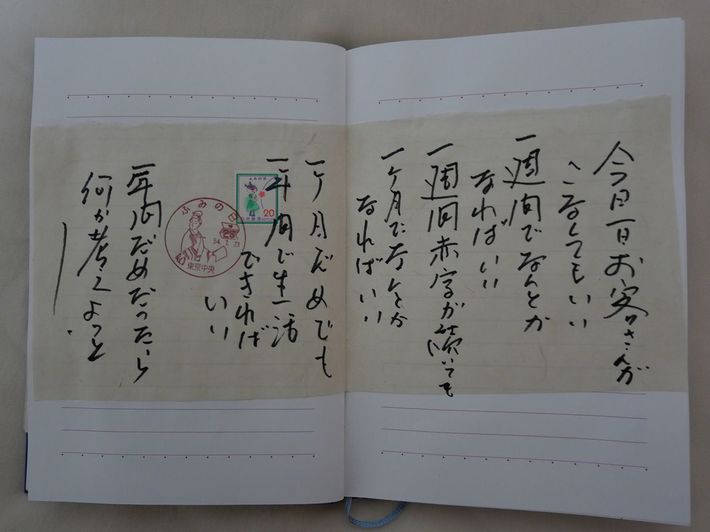 今日一日お客さんが
こなくてもいい
一週間でなんとか
なればいい
一週間赤字が続いても
一ヶ月でなんとか
なればいい
一ヶ月だめでも
一年間で生活
できれば
いい
20
ふみの日
東京中央
一年間だめだったら
何か考えよっと